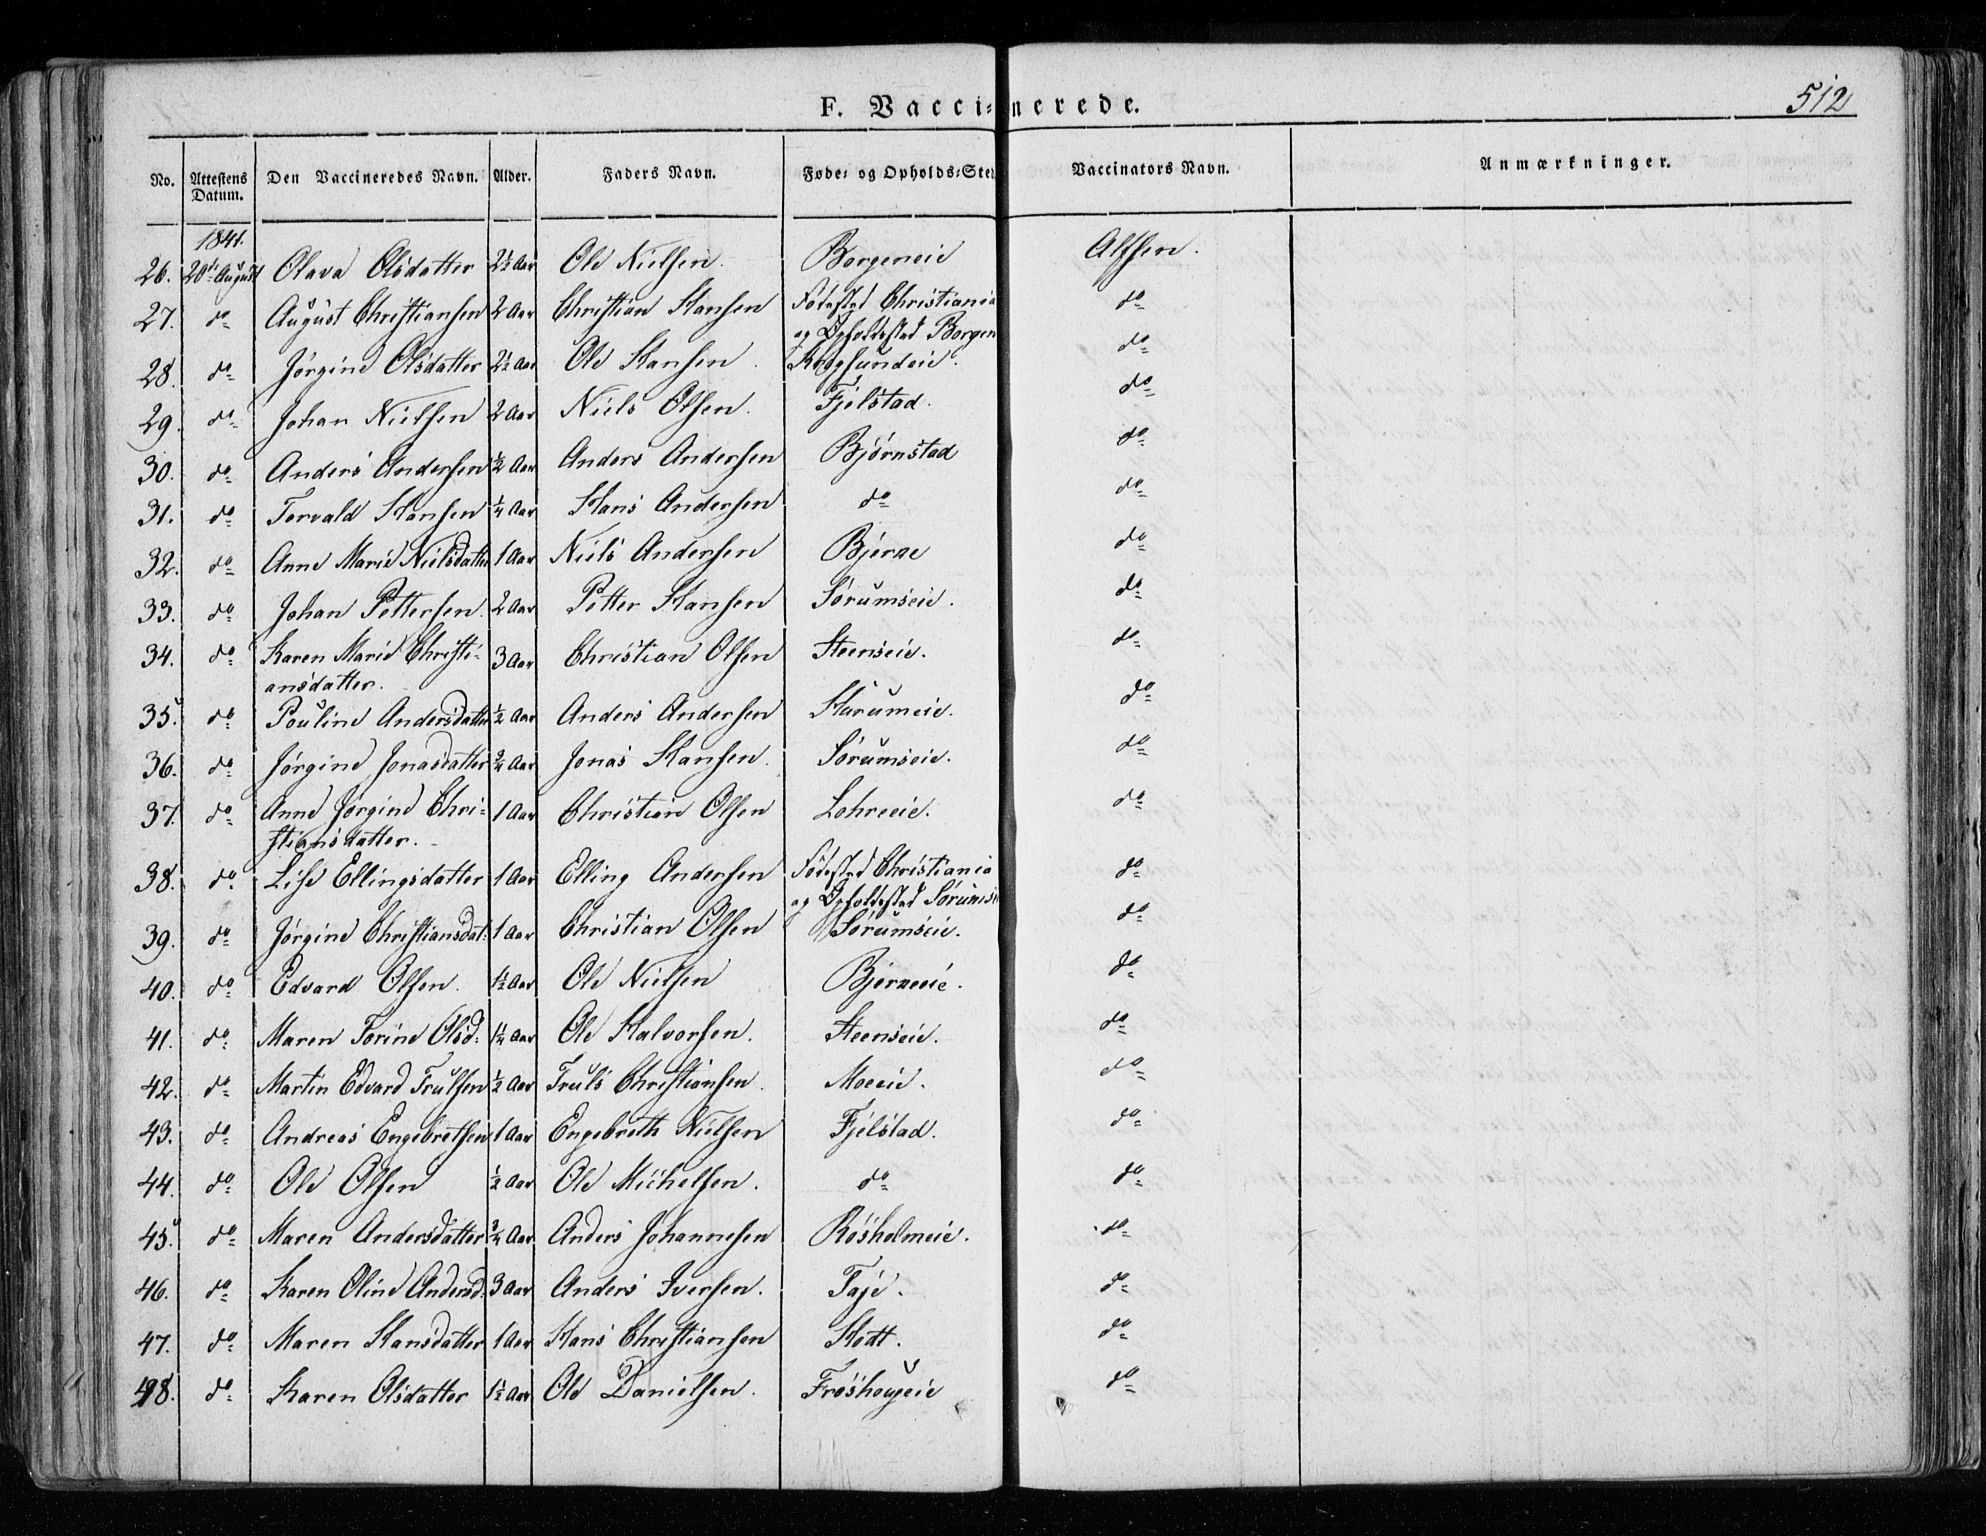 512
F. Vaccinerede.
No. Attestens Datum. Den Vaccineredes Navn. Alder. Faders Navn. Føde- og Opholds-Sted Vaccinators Navn. Anmærkninger.
1841.
26. 20de August Olava Olsdatter 2½ Aar Ole Nielsen. Borgeneie Alfsen.
27. do August Christiansen 2 Aar Christian Hansen Fødested Christiania do
og Opholdssted Borgen
28. do Jørgine Olsdatter 2½ Aar Ole Hansen. do
29. do Johan Nielsen 2 Aar Niels Olsen. Fjelstad. do
30. do Anders Andersen ½ Aar Anders Andersen Bjørnstad do
31. do Torvald Hansen ¼ Aar Hans Andersen do do
32. do Anne Marie Nielsdatter 1 Aar Niels Andersen Bjerne do
33. do Johan Pettersen. 2 Aar Petter Hansen Sørumseie. do
34. do Karen Marie Christi- 3 Aar Christian Olsen Steenseie. do
ansdatter.
35. do Pouline Andersdatter ½ Aar Anders Andersen Harumeie. do
36. do Jørgine Jonasdatter ¾ Aar Jonas Hansen. Sørumseie. do
37. do Anne Jørgine Chri- 1 Aar Christian Olsen Lohreeie. do
stiansdatter.
38. do Lise Ellingsdatter 1 Aar Elling Andersen Fødested Christiania do
og Opholdssted Sørumsei
39. do Jørgine Christiansdat: 1 Aar Christian Olsen Sørumseie. do
40. do Edvard Olsen. 1½ Aar Ole Nielsen Bjerneeie. do
41. do Maren Torine Olsd: 1¼ Aar Ole Halvorsen. Steenseie. do
42. do Martin Edvard Trulsen ½ Aar Truls Christiansen. Moeeie. do
43. do Andreas Engebretsen 1 Aar Engebreth Nielsen Fjelstad. do
44. do Ole Olsen ½ Aar Ole Michelsen. do do
45. do Maren Andersdatter ¾ Aar Anders Johannesen Røsholmeie. do
46. do Karen Oline Andersd. 3 Aar Anders Iversen. Faje. do
47. do Maren Hansdatter 1 Aar Hans Christiansen do
48. do Karen Olsdatter 1½ Aar Ole Danielsen. Frøshougeie do